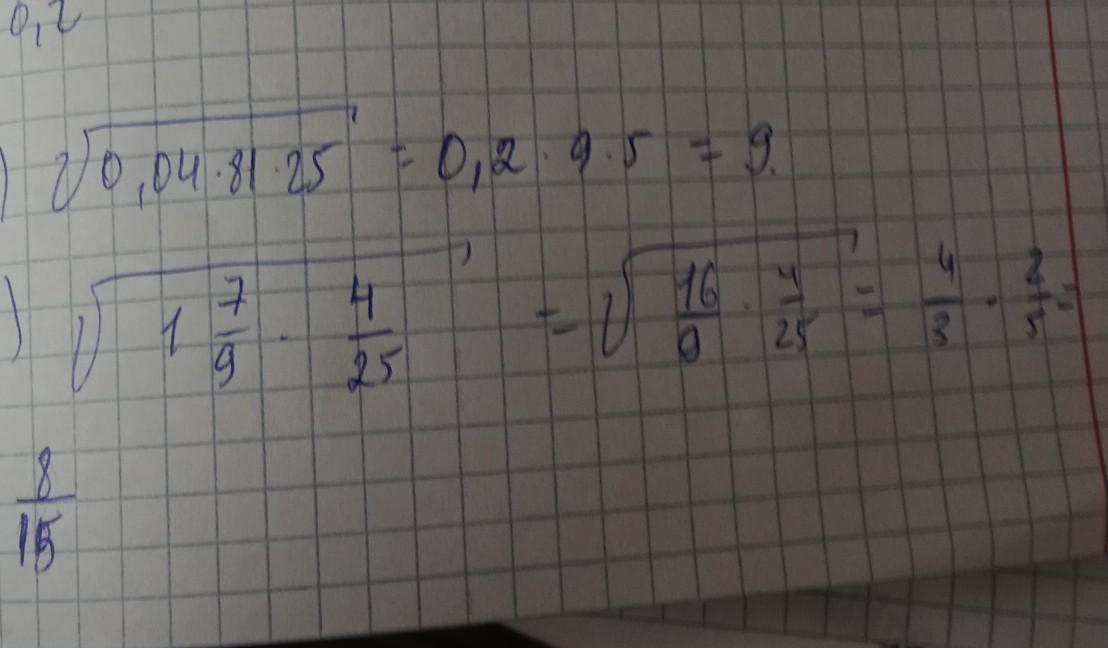 0,2
) √0,04·81·25 = 0,2·9·5 = 9.
) √1 7/9 · 4/25 = √16/9 · 4/25 = 4/3 · 2/5 =
8/15